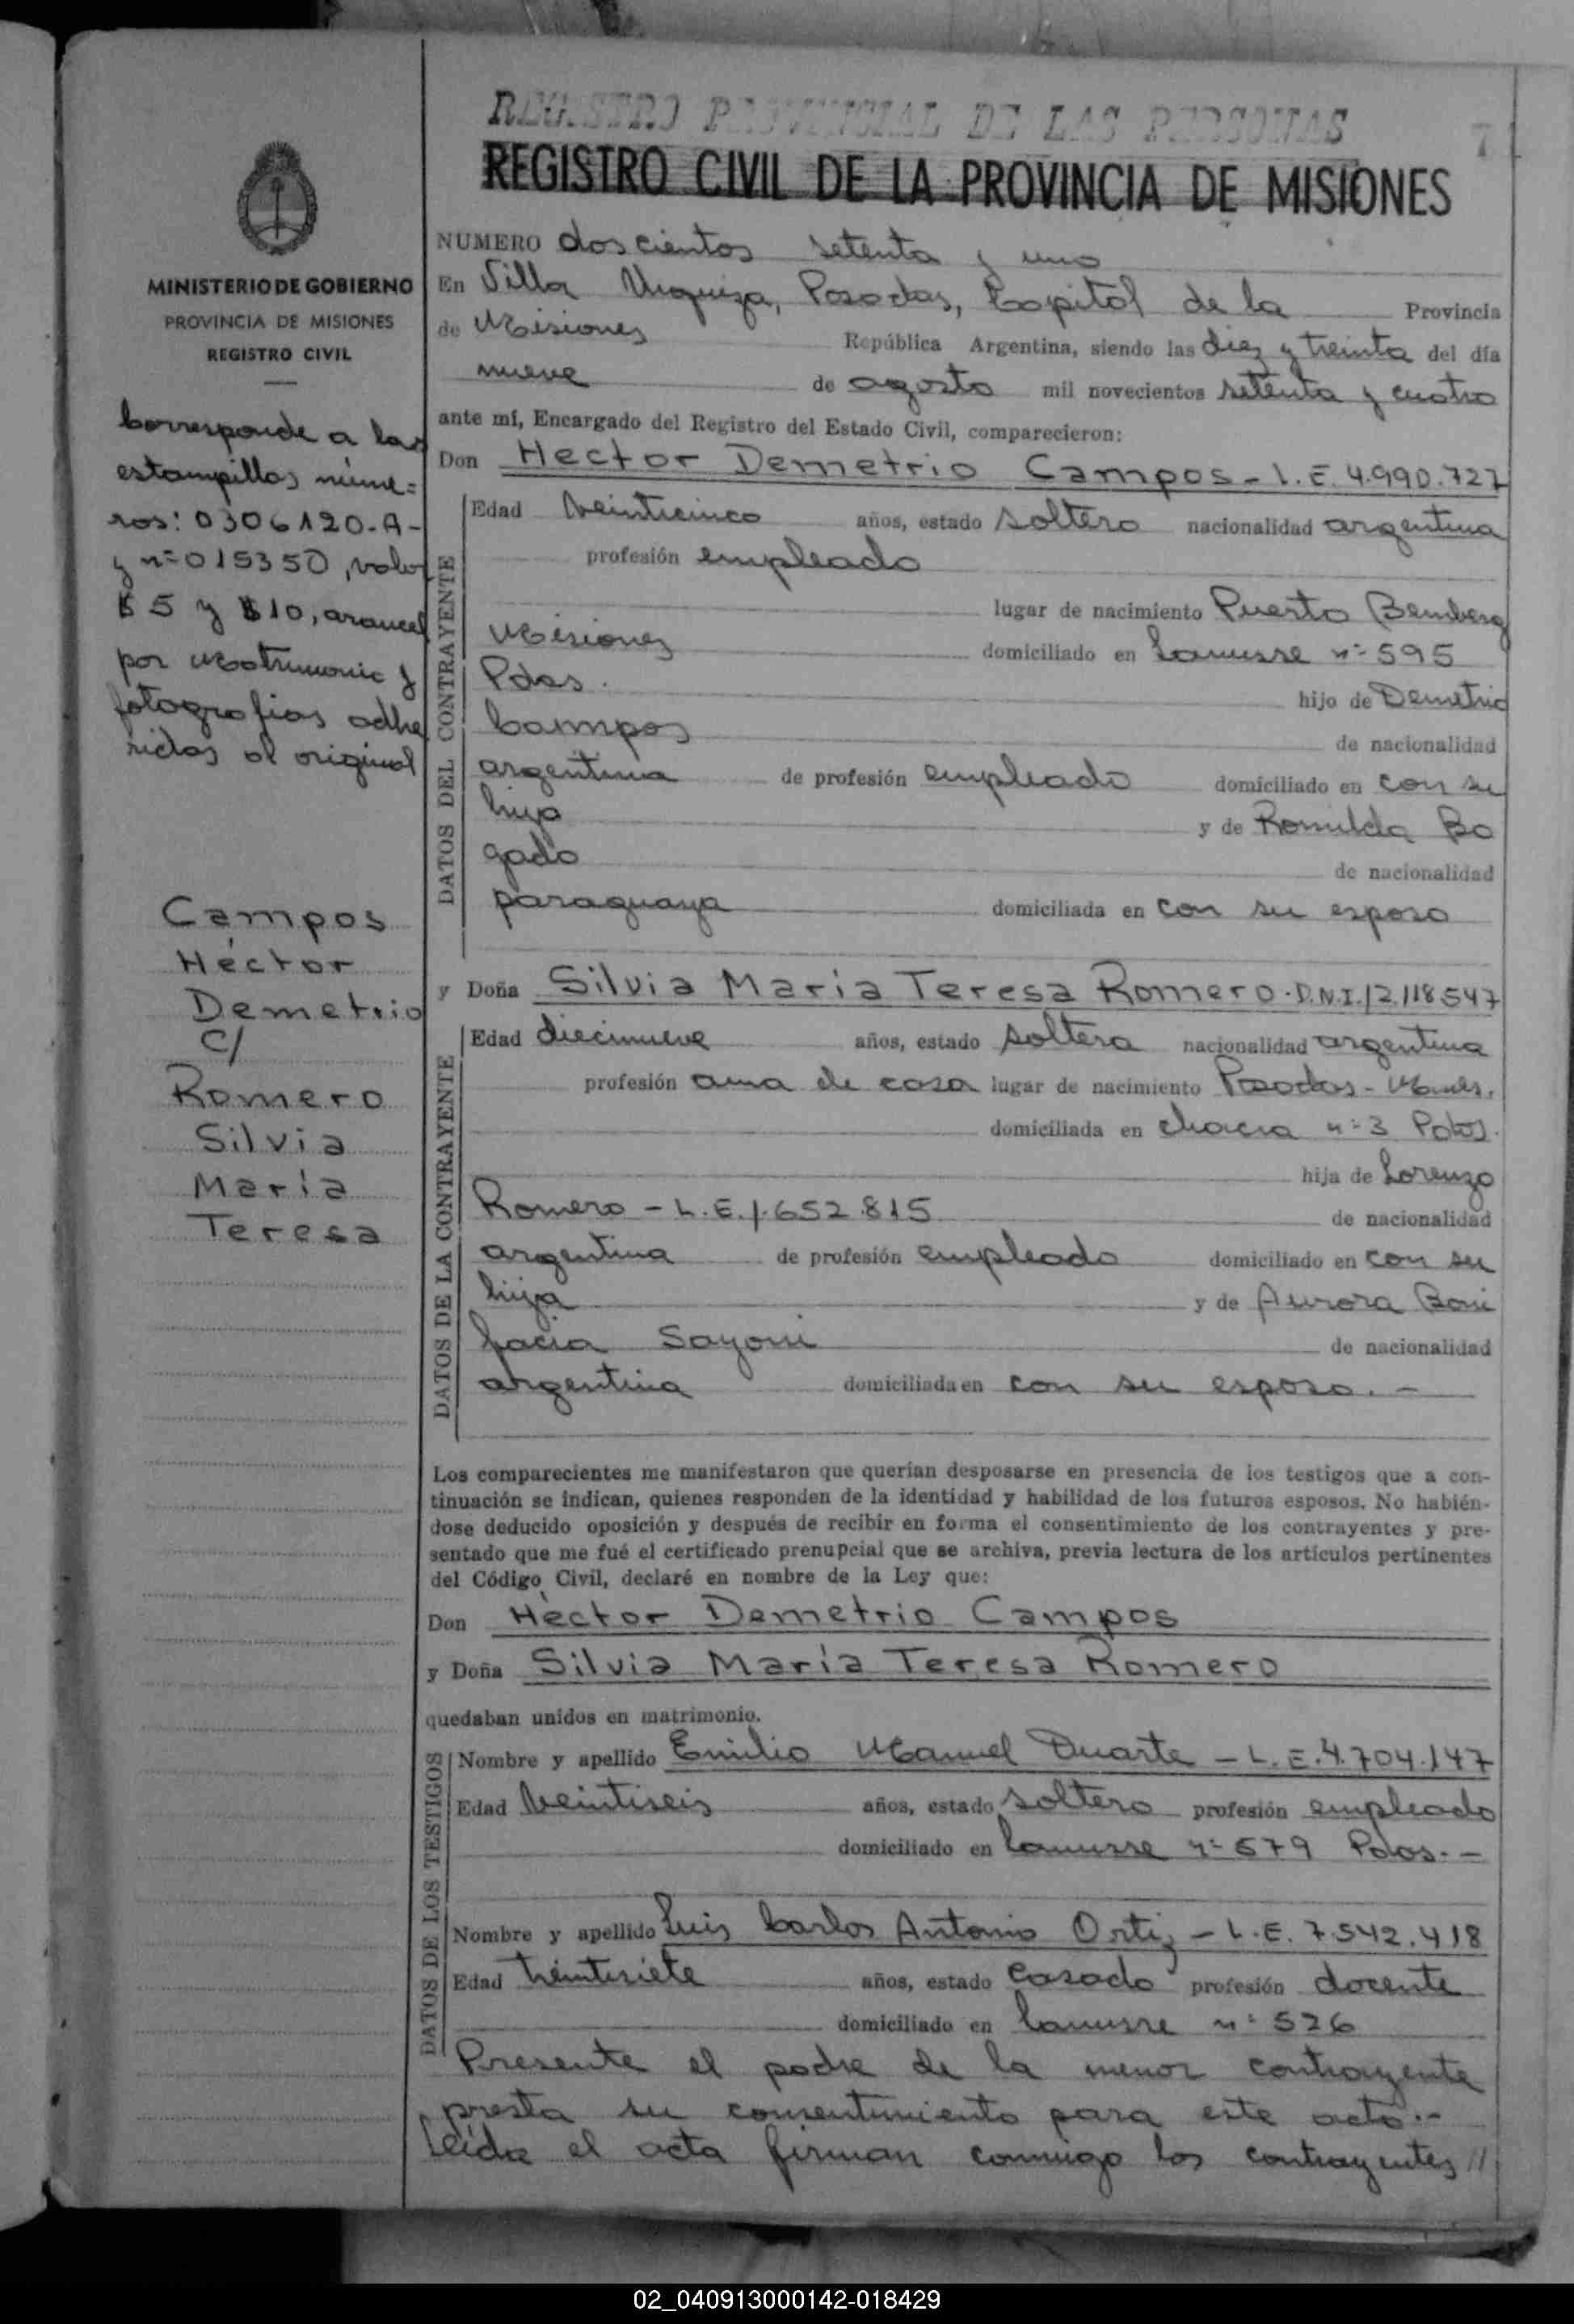 REGISTRO PROVINCIAL DE LAS PERSONAS
7
REGISTRO CIVIL DE LA PROVINCIA DE MISIONES
MINISTERIO DE GOBIERNO
PROVINCIA DE MISIONES
REGISTRO CIVIL
Corresponde a las
estampillas núme=
ros: 0306120-A-
y nº 015350, valor
$ 5 y $ 10, arancel
por Matrimonio y
fotografias adhe
ridas al original
Campos
Héctor
Demetrio
C/
Romero
Silvia
María
Teresa
NUMERO doscientos setenta y uno
En Villa Urquiza, Posadas, Capital de la Provincia
de Misiones República Argentina, siendo las diez y treinta del día
nueve de agosto mil novecientos setenta y cuatro
ante mí, Encargado del Registro del Estado Civil, comparecieron:
Don Hector Demetrio Campos - L.E. 4.990.727
DATOS DEL CONTRAYENTE
Edad veinticinco años, estado soltero nacionalidad argentina
profesión empleado
lugar de nacimiento Puerto Bemberg
Misiones domiciliado en Lanusse nº 595
Pdas. hijo de Demetrio
Campos de nacionalidad
argentina de profesión empleado domiciliado en con su
hijo y de Romilda Bo
gado de nacionalidad
paraguaya domiciliada en con su esposo
y Doña Silvia María Teresa Romero. D.N.I. 12.118.547
DATOS DE LA CONTRAYENTE
Edad diecinueve años, estado soltera nacionalidad argentina
profesión ama de casa lugar de nacimiento Posadas - Mnes.
domiciliada en chacra nº 3 Pdas.
hija de Lorenzo
Romero - L.E. 1.652.815 de nacionalidad
argentina de profesión empleado domiciliado en con su
hija y de Aurora Boni
facia Sayoni de nacionalidad
argentina domiciliada en con su esposo. -
Los comparecientes me manifestaron que querían desposarse en presencia de los testigos que a con-
tinuación se indican, quienes responden de la identidad y habilidad de los futuros esposos. No habién-
dose deducido oposición y después de recibir en forma el consentimiento de los contrayentes y pre-
sentado que me fué el certificado prenupcial que se archiva, previa lectura de los artículos pertinentes
del Código Civil, declaré en nombre de la Ley que:
Don Héctor Demetrio Campos
y Doña Silvia María Teresa Romero
quedaban unidos en matrimonio.
DATOS DE LOS TESTIGOS
Nombre y apellido Emilio Manuel Duarte - L.E. 4.704.147
Edad veintiseis años, estado soltero profesión empleado
domiciliado en Lanusse nº 579 Pdas. -
Nombre y apellido Luis Carlos Antonio Ortiz - L.E. 7.542.418
Edad veintisiete años, estado casado profesión docente
domiciliado en Lanusse nº 526
Presente el padre de la menor contrayente
presta su consentimiento para este acto.-
Leída el acta firman conmigo los contrayentes //
02_040913000142-018429